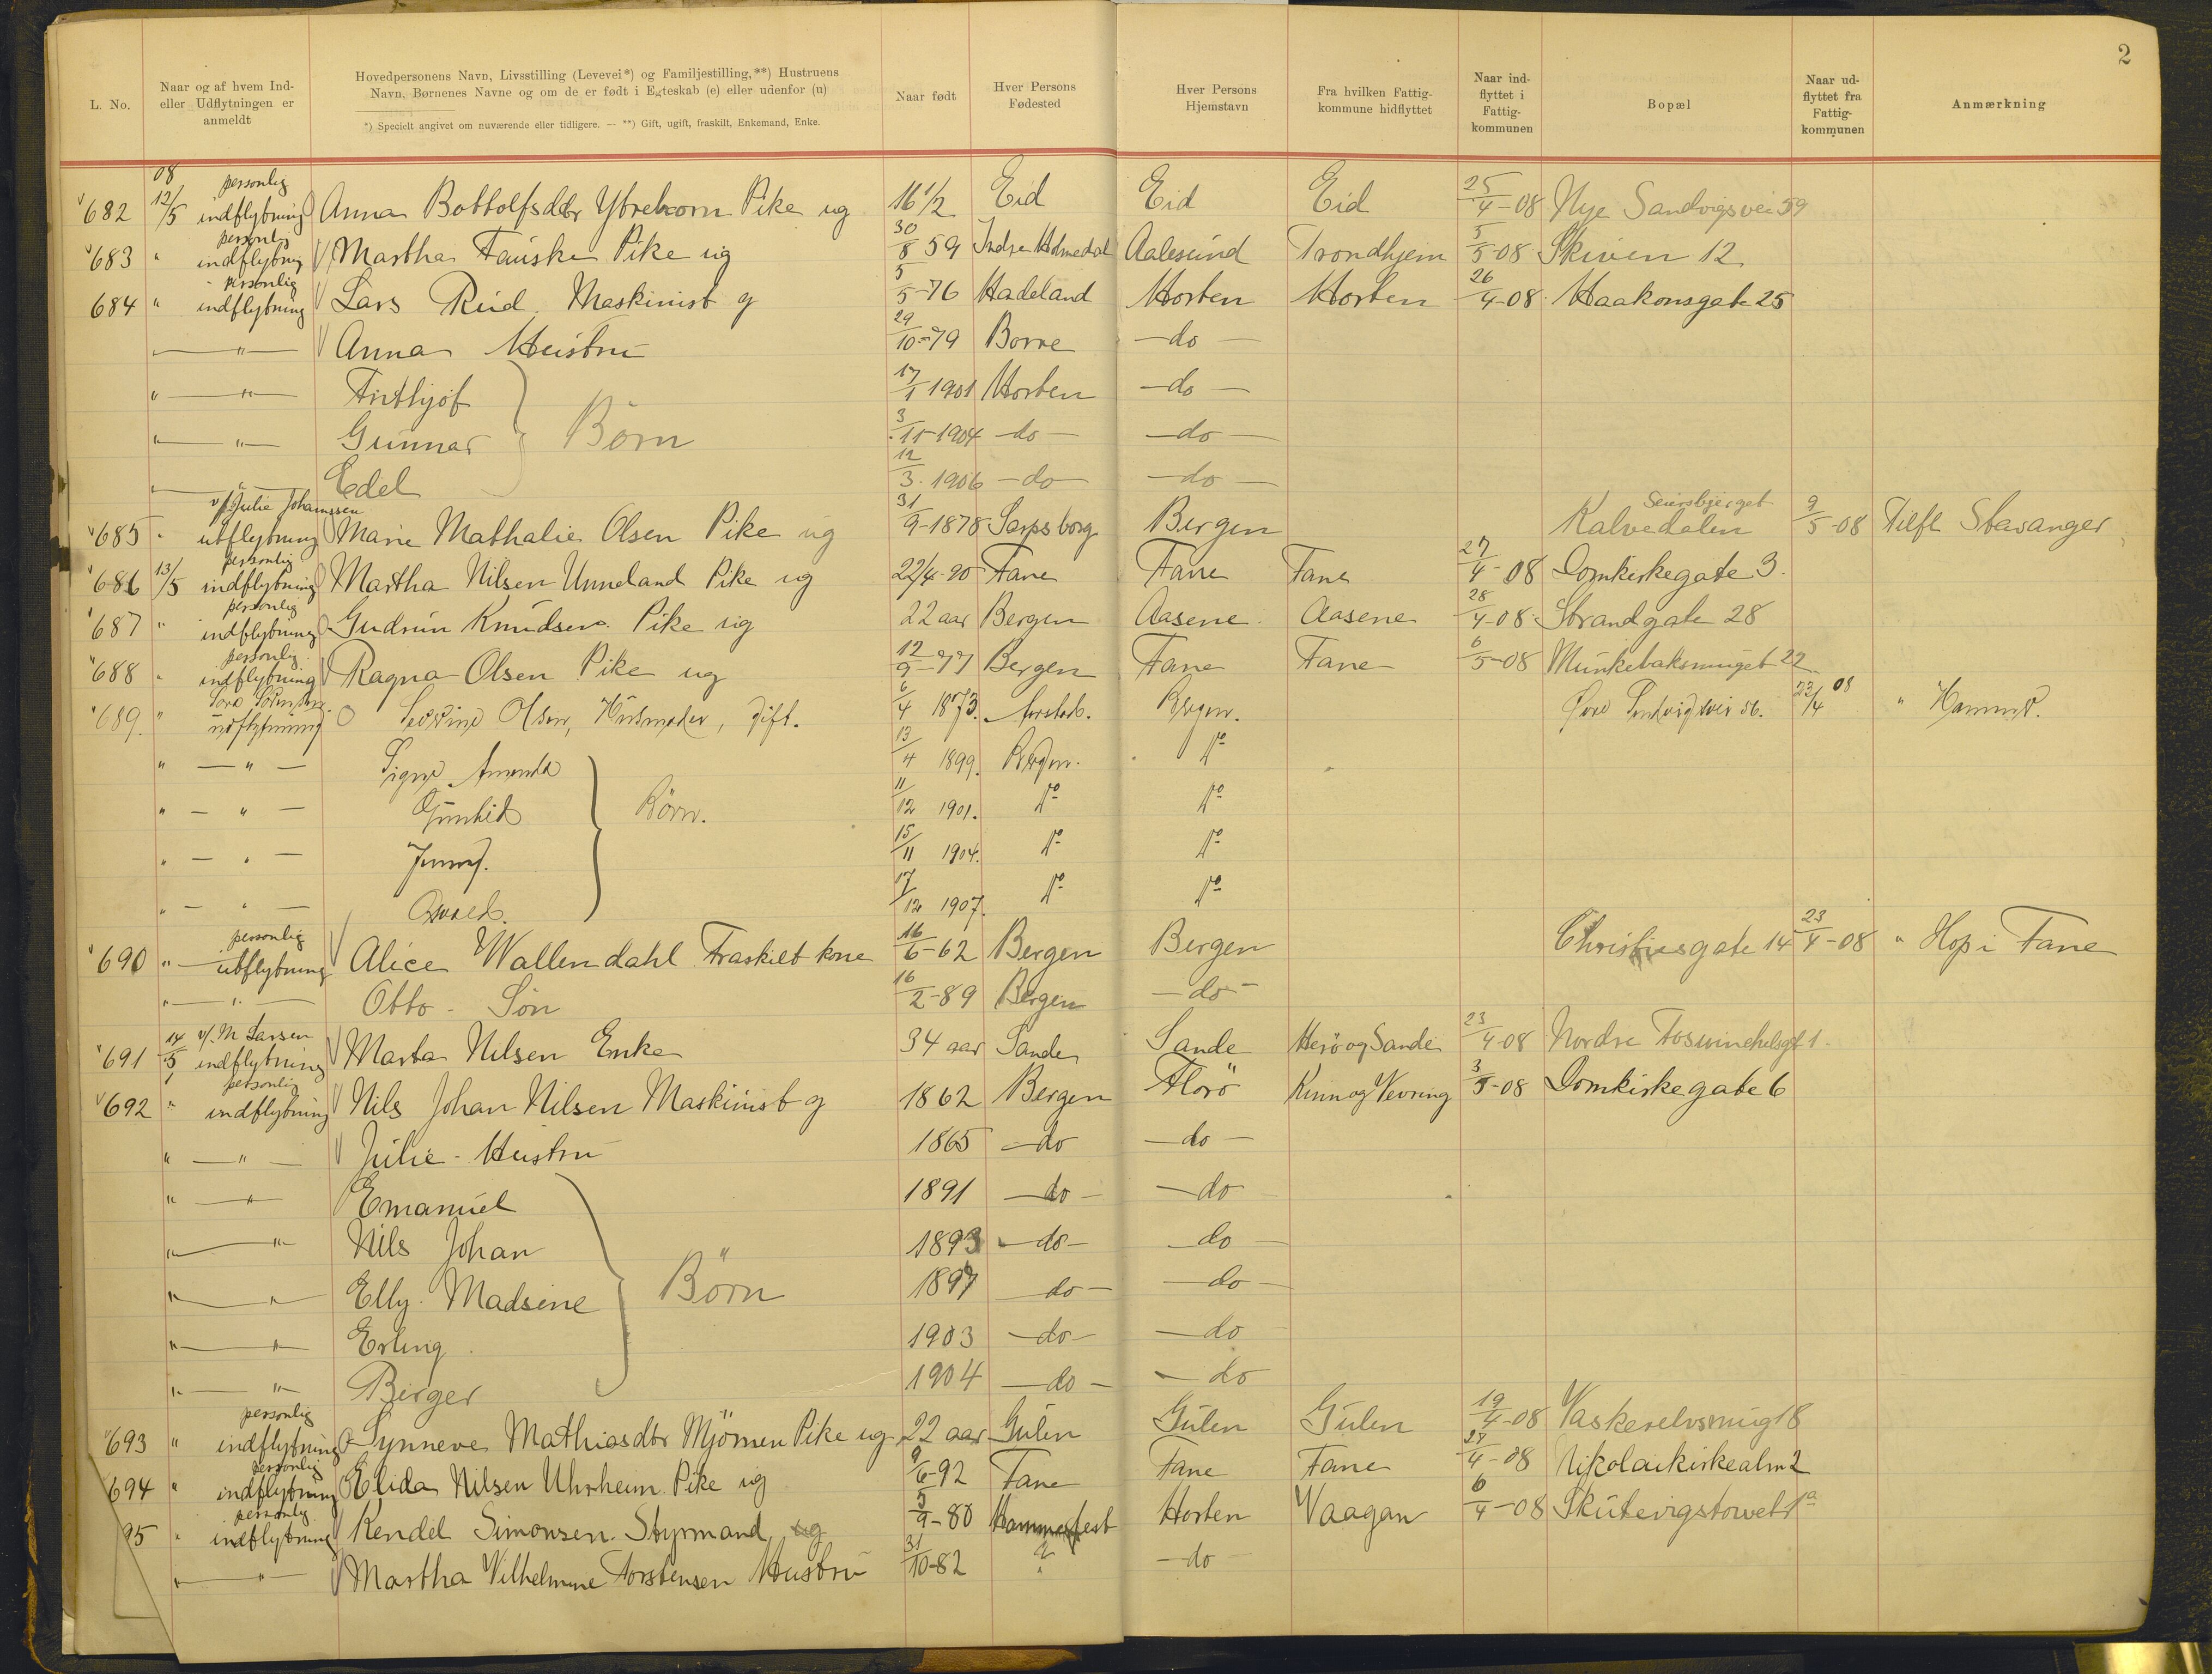 2
L. No.
Naar og af hvem Ind-
eller Udflytningen er
anmeldt
Hovedpersonens Navn, Livsstilling (Levevei*) og Familjestilling,**) Hustruens
Navn, Børnenes Navne og om de er født i Egteskab (e) eller udenfor (u)
*) Specielt angivet om nuværende eller tidligere. — **) Gift, ugift, fraskilt, Enkemand, Enke.
Naar født
Hver Persons
Fødested
Hver Persons
Hjemstavn
Fra hvilken Fattig-
kommune hidflyttet
Naar ind-
flyttet i
Fattig-
kommunen
Bopæl
Naar ud-
flyttet fra
Fattig-
kommunen
Anmærkning
08 personlig
682 12/5 indflytning Anna Bottolfsdtr Ytrehorn Pike ug 16 1/2 Eid Eid Eid 25/4-08 Nye Sandvigsvei 59
personlig
683 " indflytning Martha Fauske Pike ug 30/8 59 Indre Holmedal Aalesund Trondhjem 5/5-08 Skiven 12
personlig
684 " indflytning Lars Rud. Maskinist g 5/5-76 Hadeland Horten Horten 26/4-08 Haakonsgate 25
— " — Anna Hustru 29/10-79 Borre — do —
" — " — Frithjof 17/1 1901 Horten — do —
" — " — Gunnar Börn 3/11-1904 — do — — do —
— " — Edel 12/3. 1906 — do — — do —
v/ Julie Johanssen Seiersbjerget
685 " utflytning Marie Mathalie Olsen Pike ug 31/9-1878 Sarpsborg Bergen Kalvedalen 9/5-08 Tilfl. Stavanger
personlig
686 13/5 indflytning Martha Nilsen Unneland Pike ug 22/4-90 Fane Fane Fane 27/4-08 Domkirkegate 3.
personlig
687 " indflytning Gudrun Knudsen Pike ug 22 aar Bergen Aasene Aasene 28/4-08 Strandgate 28
personlig
688 " indflytning Ragna Olsen Pike ug 12/9-77 Bergen Fane Fane 6/5-08 Munkebaksmuget 22
689. " udflytning Severine Olsen, Husmoder, gift. 6/4 1873. Aarstad. Bergen. Øvre Sandvigsvei 56. 22/4 08 " Hammerf.
" — " — Signe Amanda 13/4 1899. Bergen. do
" — " — Gunhild Börn. 11/12 1901. do do
" — " — 15/11 1904. do do
" — " — Osvald. 17/12 1907. do do
personlig
690 " — utflytning Alice Wallendahl Fraskilt kone 16/6-62 Bergen Bergen Christiesgate 14 23/4-08 " Hop i Fane
" — " — Otto - Sön 16/2-89 Bergen — do —
v/. M Larsen
691 14/5 indflytning Marta Nilsen Enke 34 aar Sande Sande Herö og Sande 23/4-08 Nordre Foswinckelsgt 1.
personlig
692 " indflytning Nils Johan Nilsen Maskinist g 1862 Bergen Florö Kinn og Vevring 3/5-08 Domkirkegate 6
" — " — Julie - Hustru 1865 — do — do —
" — " Emanuel 1891 — do — — do
" — " Nils Johan 1893 — do — do —
" — " Elly Madsine Börn 1897 do — — do —
" — " Erling 1903 — do — — do
" — " Birger 1904 — do — — do
personlig
693 " indflytning Synneve Mathiasdtr Mjömen Pike ug 22 aar Gulen Gulen Gulen 19/4-08 Vaskerelvsmug 18
personlig
694 " indflytning Elida Nilsen Uhrheim Pike ug 9/6-92 Fane Fane Fane 27/4-08 Nikolaikirkealm 2
personlig
95 " indflytning Rendel Simonsen. Styrmand ug 5/9-80 Hammerfest Horten Vaagan 6/4-08 Skutevigstorvet 1a
" — " — Martha Vilhelmine Torstensen Hustru 31/10-82 " — do —